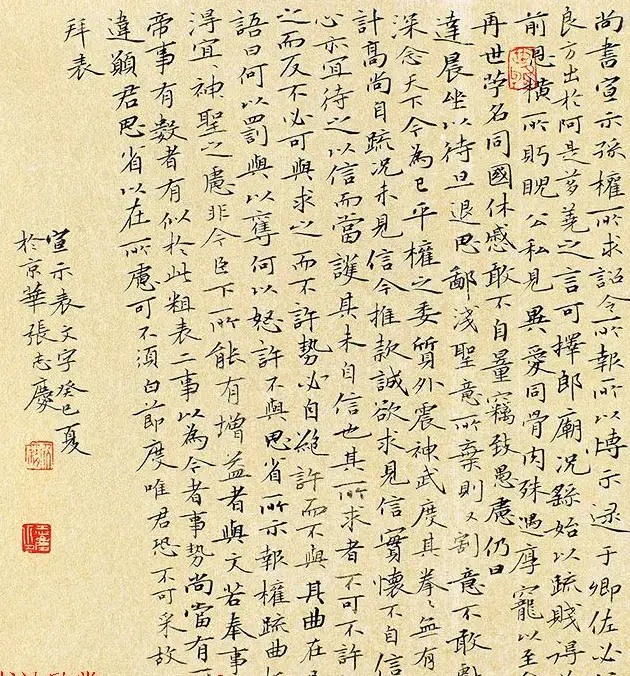 尚書宣示孫權所求詔令所報所以博示逮于卿佐必
良方出於阿是芻蕘之言可擇郎廟況繇始以疏賤得
前恩橫所眄睨公私見異愛同骨肉殊遇厚寵以至
再世荣名同國休慼敢不自量竊致愚慮仍日
達晨坐以待旦退思鄙淺聖意所棄則又割意不敢獻
深念天下今為已平權之委質外震神武度其拳〻無有
計高尚自疏況未見信今推款誠欲求見信實懷不自信
心亦宜待之以信而當護其未自信也其所求者不可不許
之而反不必可與求之而不許勢必自絕許而不與其曲在
語曰何以罰與以奪何以怒許不與思省所示報權疏曲
得宜〻神聖之慮非今臣下所能有增益者與文若奉事
帝事有數者有似於此粗表二事以為今者事勢尚當有
違願君思省以在所慮可不須白節度唯君恐不可采故
拜表
宣示表文字癸巳夏
於京華張志慶